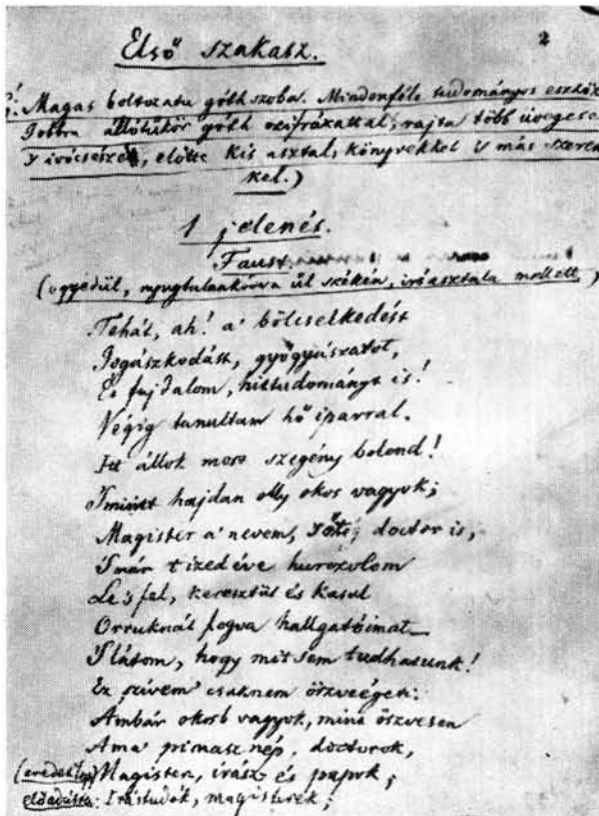 2
Első szakasz.
Magas boltozatu góth szoba. Mindenféle tudományos eszköz
Jobbra állótükör góth czifrázattal, rajta több üveg
előtte kis asztal, könyvekkel s más
kel.)
1 jelenés.
Faust.
(egyedül, nyugtalankodva ül székén, iróasztala mellett)
Tehát, ah! a' bölcselkedést
Jogászkodást, gyógyászatot,
És fajdalom, hittudományt is!
Végig tanultam hő iparral.
Itt állok most szegény bolond!
S mint hajdan olly okos vagyok;
Magister a' nevem, sőt doctor is,
S már tized éve hurczolom
Le 's fel, keresztül és kasul
Orruknál fogva hallgatóimat
S látom, hogy mit sem tudhatunk!
Ez szívem' csaknem öszveégeti:
Ámbár okosb vagyok, mint öszvesen
Ama nép, doctorok,
Magister, irász és papok;
előadásra: Irástudók, magisterek;